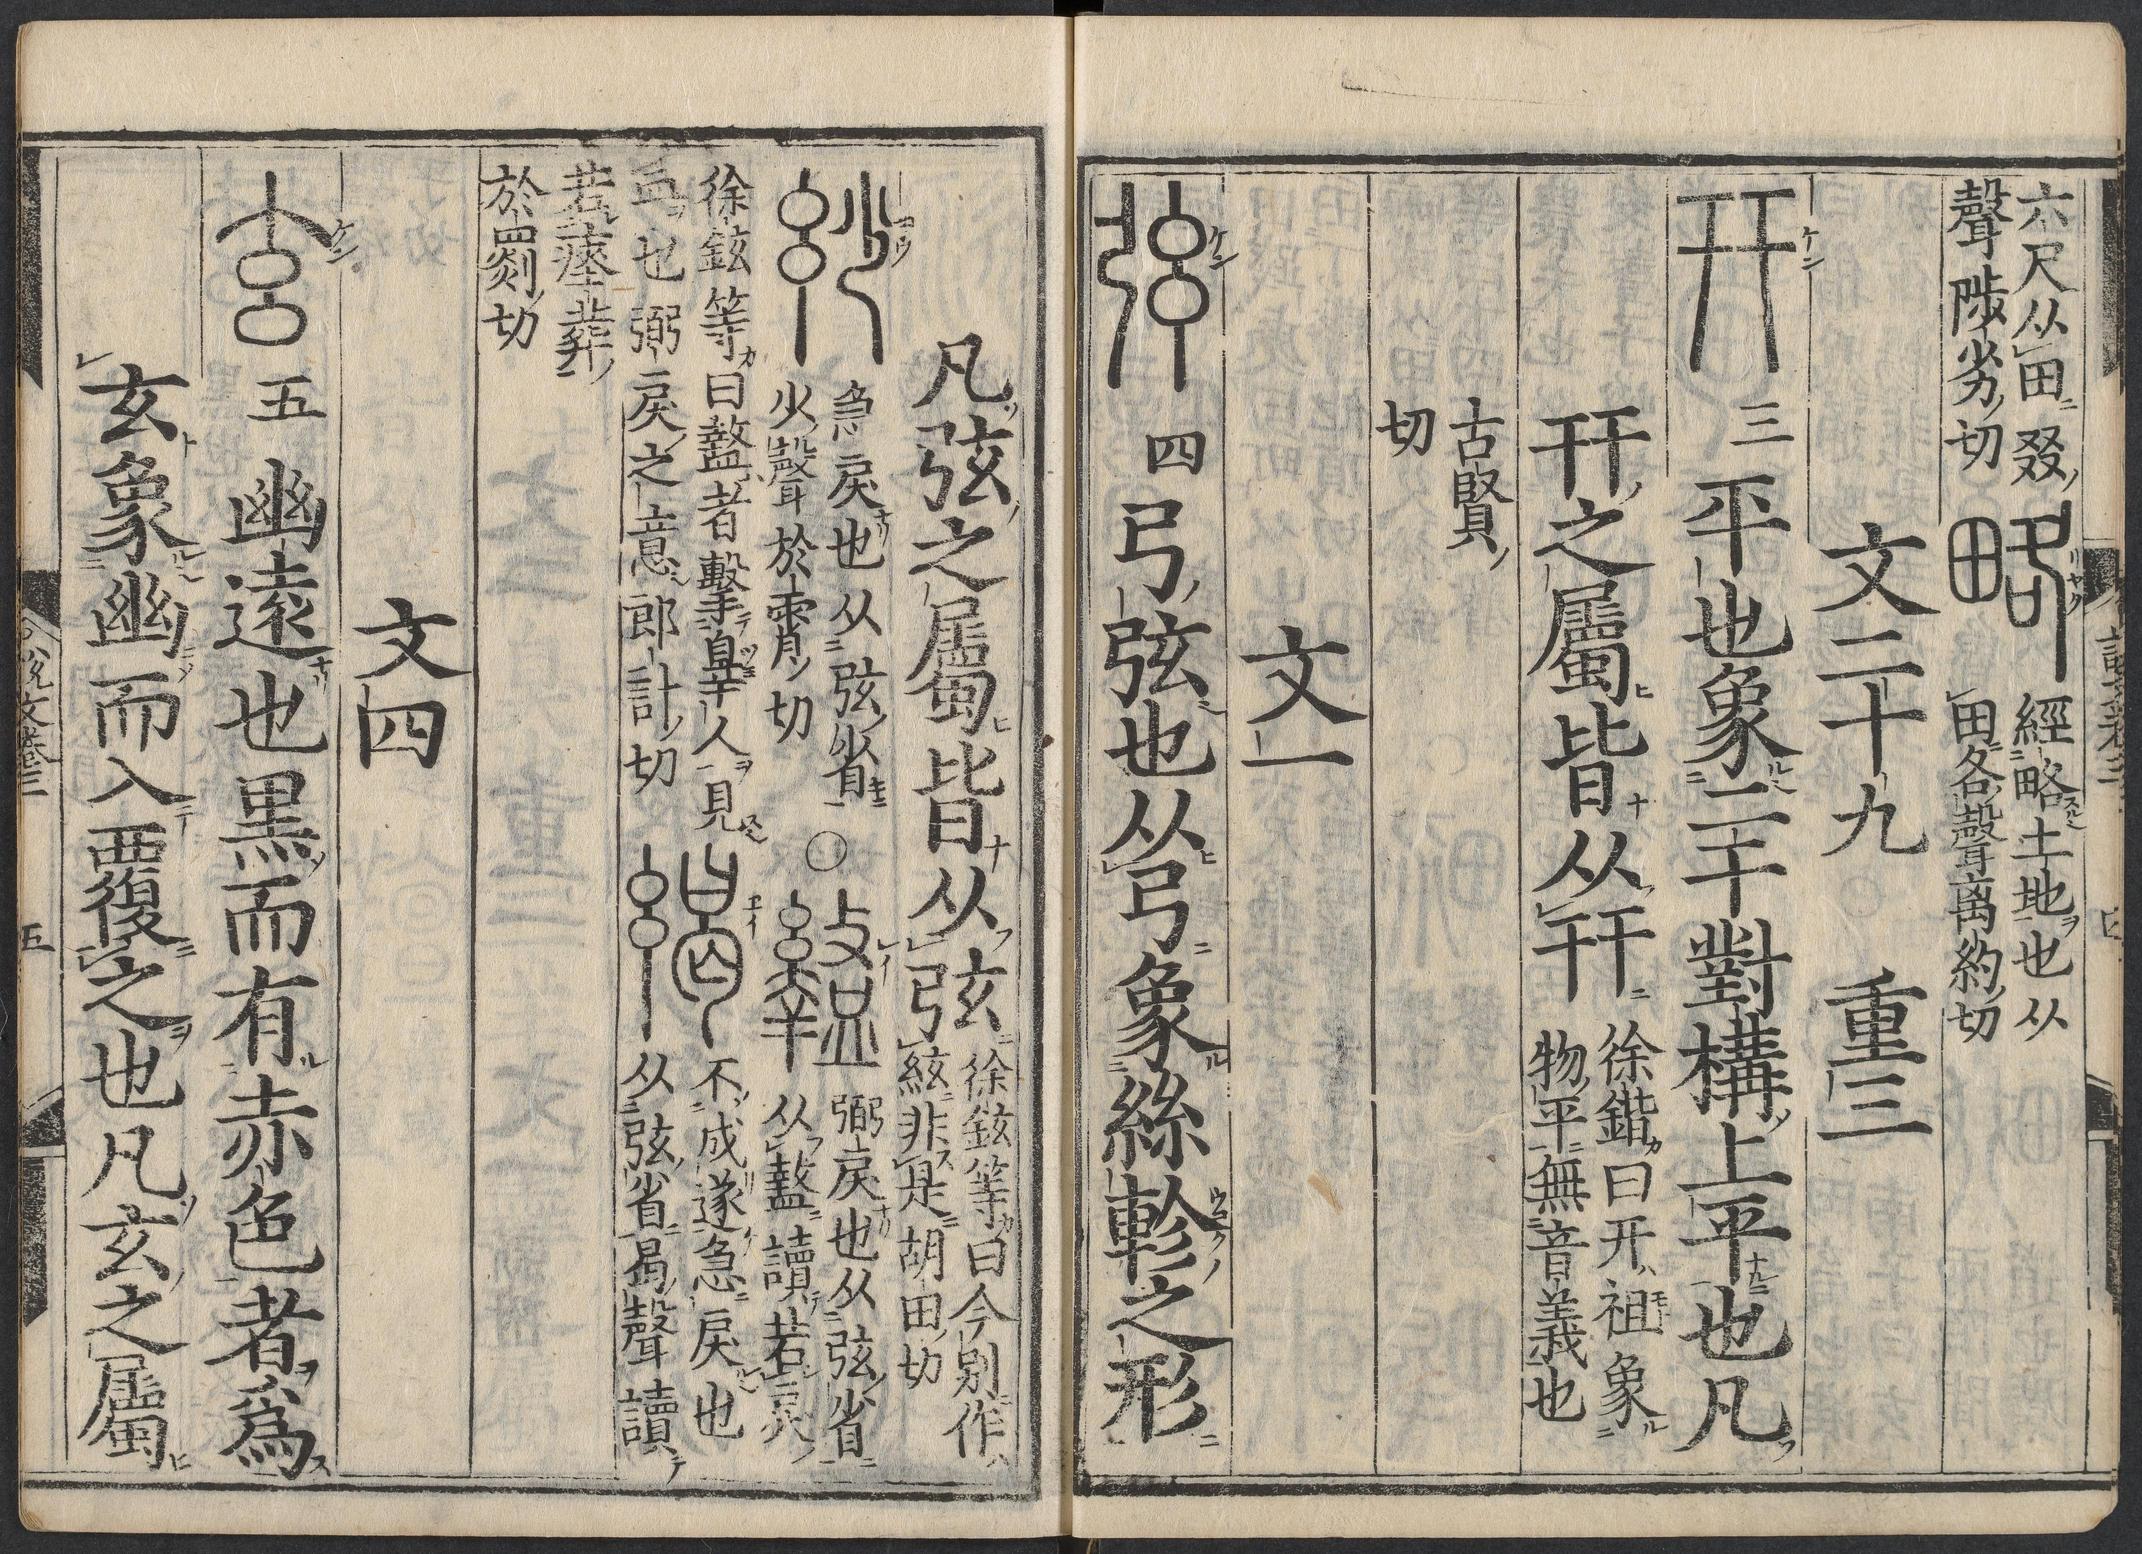 六尺从田叕
聲陟劣切
畧
經略土地也从
田各聲离約切
文二十九　重三
幵三平也象二干對構上平也凡
幵之屬皆从幵
徐鍇曰幵祖象
物平無音義也
古賢
切
弦四弓弦也从弓象絲軫之形
文一
凡弦之屬皆从弦
徐鉉等曰今別作
絃非是胡田切
急戾也从弦省
少聲於霄切
〇
弼戾也从弦省
从盩讀若戾
徐鉉等曰盩者擊辠人見
血也弼戾之意郎計切
不成遂急戾也
从弦省曷聲讀
若瘞葬
於罽切
文四
玄五幽遠也黑而有赤色者爲
玄象幽而入覆之也凡玄之屬
說文卷三
五